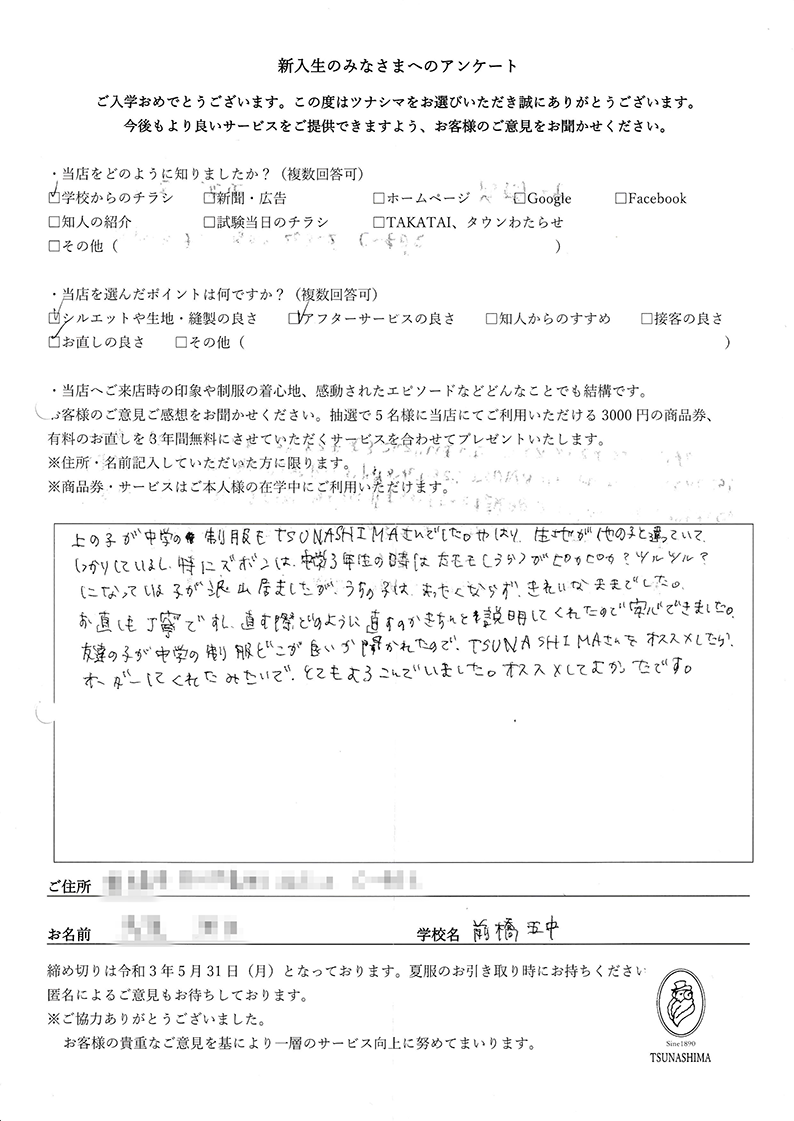 新入生のみなさまへのアンケート
ご入学おめでとうございます。この度はツナシマをお選びいただき誠にありがとうございます。
今後もより良いサービスをご提供できますよう、お客様のご意見をお聞かせください。
・当店をどのように知りましたか？（複数回答可）
☑学校からのチラシ □新聞・広告 □ホームページ □Google □Facebook
□知人の紹介 □試験当日のチラシ □TAKATAI、タウンわたらせ
□その他（ ）
・当店を選んだポイントは何ですか？（複数回答可）
☑シルエットや生地・縫製の良さ ☑アフターサービスの良さ □知人からのすすめ □接客の良さ
☑お直しの良さ □その他（ ）
・当店へご来店時の印象や制服の着心地、感動されたエピソードなどどんなことでも結構です。
お客様のご意見ご感想をお聞かせください。抽選で5名様に当店にてご利用いただける3000円の商品券、
有料のお直しを3年間無料にさせていただくサービスを合わせてプレゼントいたします。
※住所・名前記入していただいた方に限ります。
※商品券・サービスはご本人様の在学中にご利用いただけます。
上の子が中学の制服もTSUNASHIMAさんでした。やはり、生地が他の子と違っていて、
しっかりしているし、特にズボンは、中学3年生の時は がピカピカ？ツルツル？
になっている子が沢山居ましたが、うちの子は、まったくならず、きれいな ままでした。
お直しも丁寧ですし、直す際どのように直すのかきちんと説明してくれたので安心できました。
友達の子が中学の制服どこが良いか聞かれたので、TSUNASHIMAさんをオススメしたら、
オーダーしてくれたみたいで、とてもよろこんでいました。オススメしてよかったです。
ご住所
お名前 学校名 前橋五中
締め切りは令和3年5月31日（月）となっております。夏服のお引き取り時にお持ちください
匿名によるご意見もお待ちしております。
※ご協力ありがとうございました。
お客様の貴重なご意見を基により一層のサービス向上に努めてまいります。
Sine1890
TSUNASHIMA